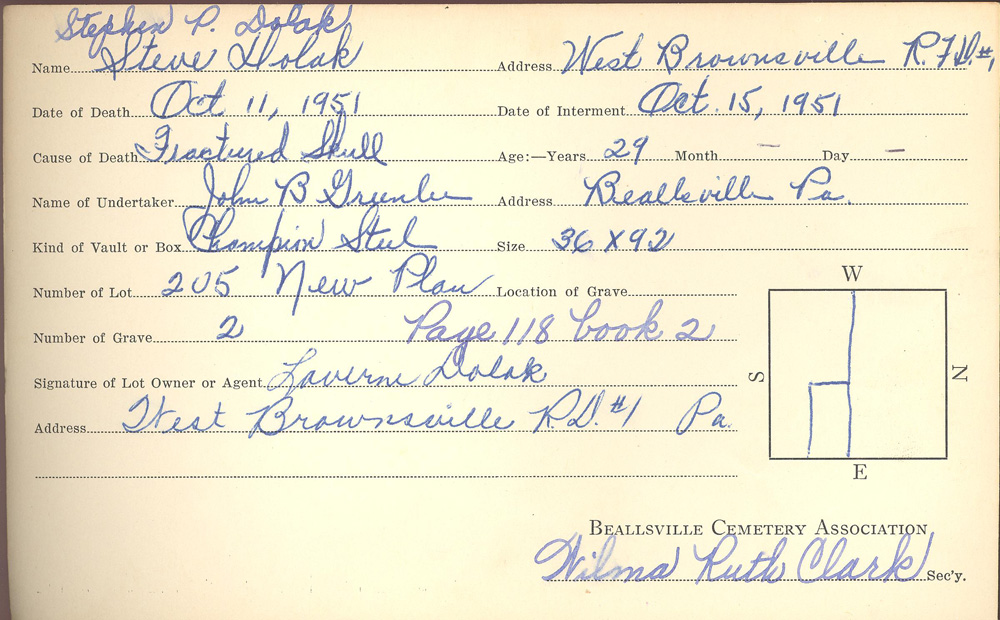 Stephen P. Dolak
Name Steve Dolak Address West Brownsville R.F.D.#1
Date of Death Oct. 11, 1951 Date of Interment Oct. 15, 1951
Cause of Death Fractured Skull Age:—Years 29 Month — Day —
Name of Undertaker John B Greenlee Address Beallsville Pa.
Kind of Vault or Box Champion Steel Size 36 X 92
Number of Lot 205 New Plan Location of Grave
Number of Grave 2 Page 118 book 2
Signature of Lot Owner or Agent Laverne Dolak
Address West Brownsville R.D. #1 Pa.
W
S N
E
BEALLSVILLE CEMETERY ASSOCIATION
Wilma Ruth Clark Sec'y.